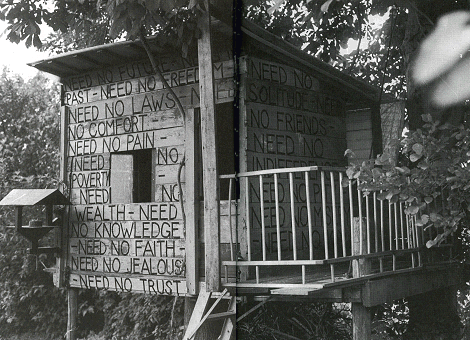 NEED NO FUTURE
PAST - NEED NO FREEDOM
NEED NO LAWS - NEED
NO COMFORT
NEED NO PAIN -
NEED NO
POVERTY -
NEED NO
WEALTH - NEED
NO KNOWLEDGE
- NEED NO FAITH -
NEED NO JEALOUSY
- NEED NO TRUST
NEED NO
SOLITUDE - NEED
NO FRIENDS -
NEED NO
INDIFFERENCE
NEED NO